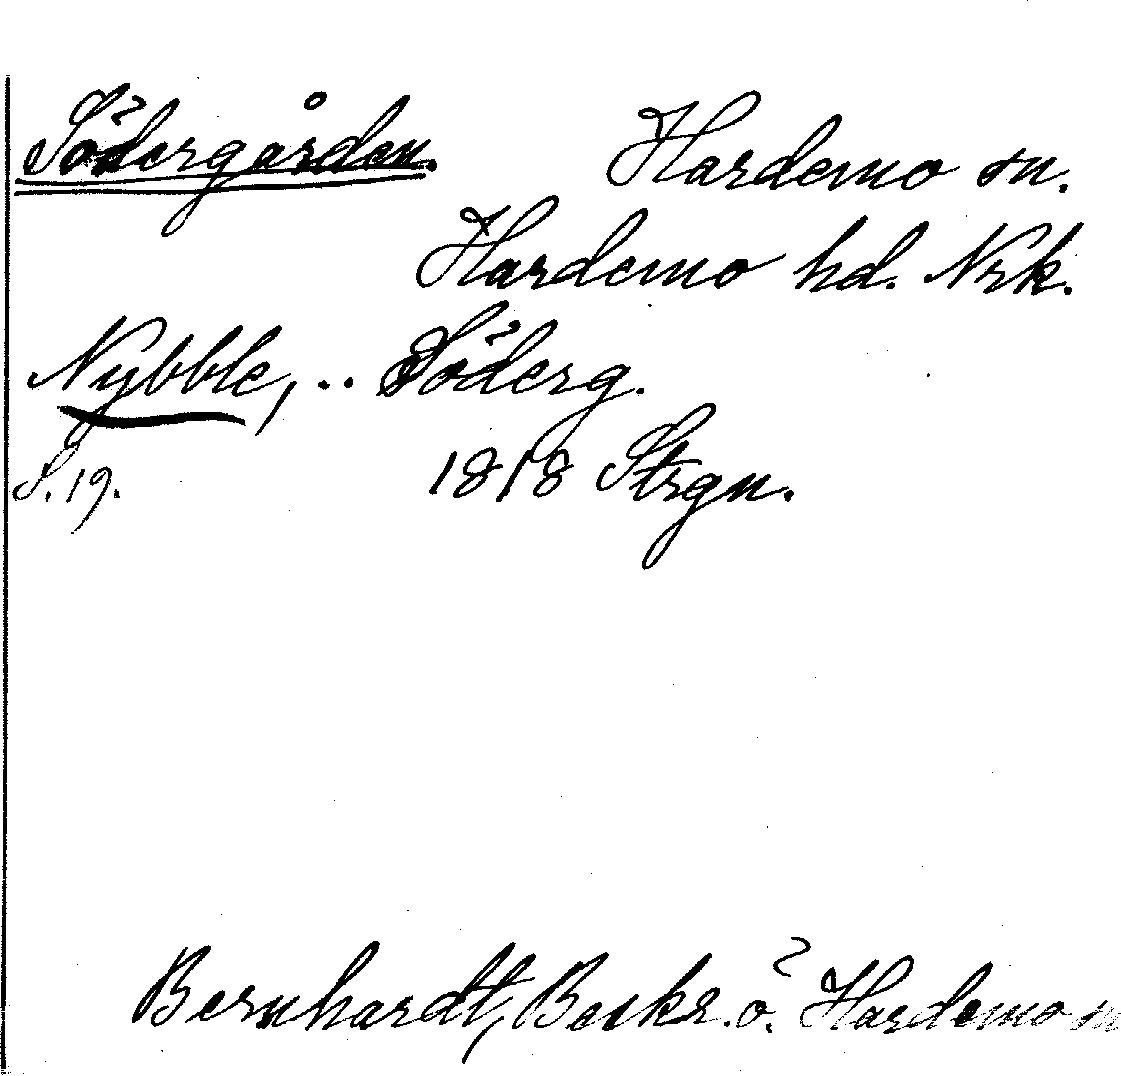 Södergården. Hardemo sn.
Hardemo hd. Nrk.
Nybble, .. Söderg.
S. 19. 1818 Strgn.
Bernhardt, Beskr. ö. Hardemo sn